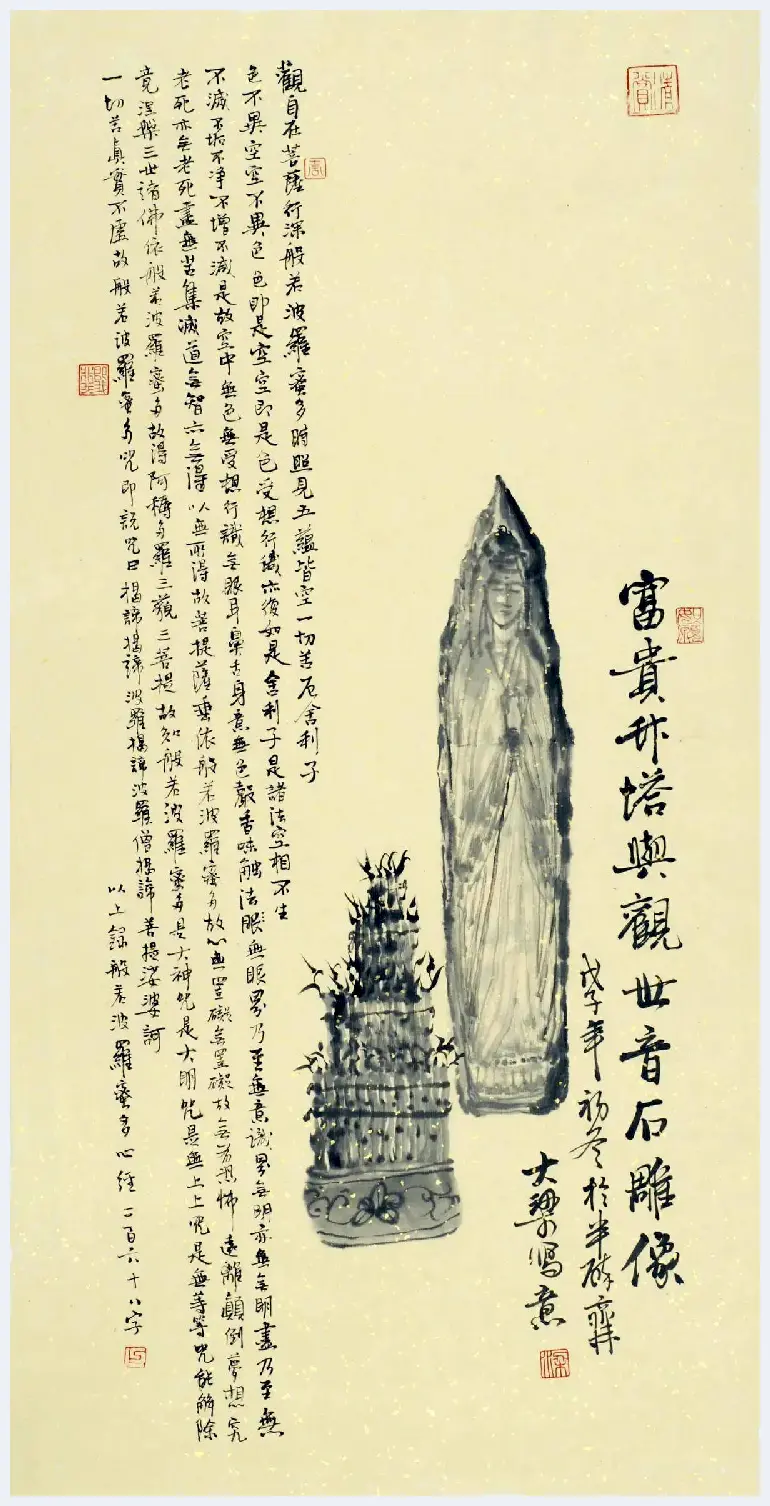 富貴竹塔與觀世音石雕像
戊子年初冬於半醉齋
大梁寫意
觀自在菩薩行深般若波羅蜜多時照見五蘊皆空一切苦厄舍利子
色不異空空不異色色即是空空即是色受想行識亦復如是舍利子是諸法空相不生
不滅不垢不净不增不減是故空中無色無受想行識無眼耳鼻舌身意無色聲香味触法眼無眼界乃至無意識界無明亦無無明盡乃至無
老死亦無老死盡無苦集滅道無智亦無得以無所得故菩提薩埵依般若波羅蜜多故心無罣礙無罣礙故無有恐怖遠離顛倒夢想究
竟涅槃三世諸佛依般若波羅蜜多故得阿耨多羅三藐三菩提故知般若波羅蜜多是大神咒是大明咒是無上上咒是無等等咒能解除
一切苦真實不虛故般若波羅蜜多咒即說咒曰揭諦揭諦波羅揭諦波羅僧揭諦菩提娑婆訶
以上錄般若波羅蜜多心經二百六十八字